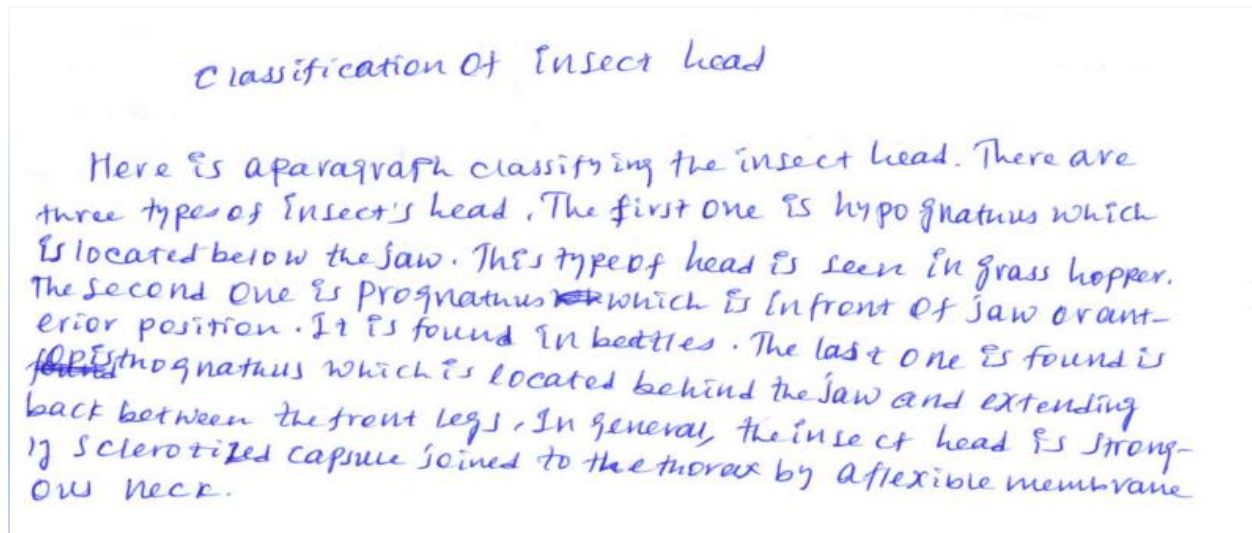 Classification Of insect head
Here is aparagraph classifying the insect head. There are
three types of insect's head. The first one is hypognathus which
is located below the jaw. This type of head is seen in grass hopper.
The second one is prognathus which is in front of jaw or ant-
erior position. It is found in beattles. The last one is found is
opisthognathus which is located behind the jaw and extending
back between the front legs. In general, the insect head is strong-
ly sclerotized capsule joined to the thorax by a flexible membrane
ous neck.